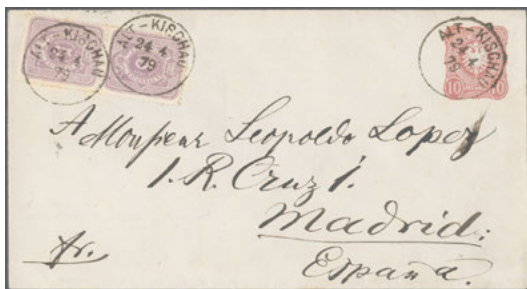 ALT-KISCHAU
24 4
79
ALT-KISCHAU
24 4
79
ALT-KISCHAU
24 4
79
10 10
A Monsieur Leopoldo Lopez
1. R. Cruz 1.
Madrid:
fr.
España.